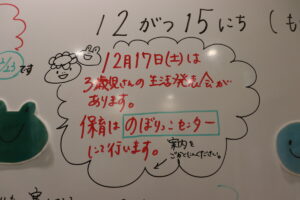 12がつ15にち(も
です
12月17日(土)は
3歳児さんの生活発表会が
あります。
保育は のぼりっこセンター
にて行います。
案内を
ごらんください。